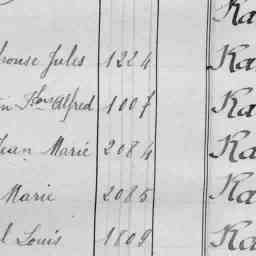 Ka
house Jules 1224 Ka
n Hon Alfred 1007 Ka
Jean Marie 2084 Ka
Marie 2085 Ka
l Louis 1809 Ka